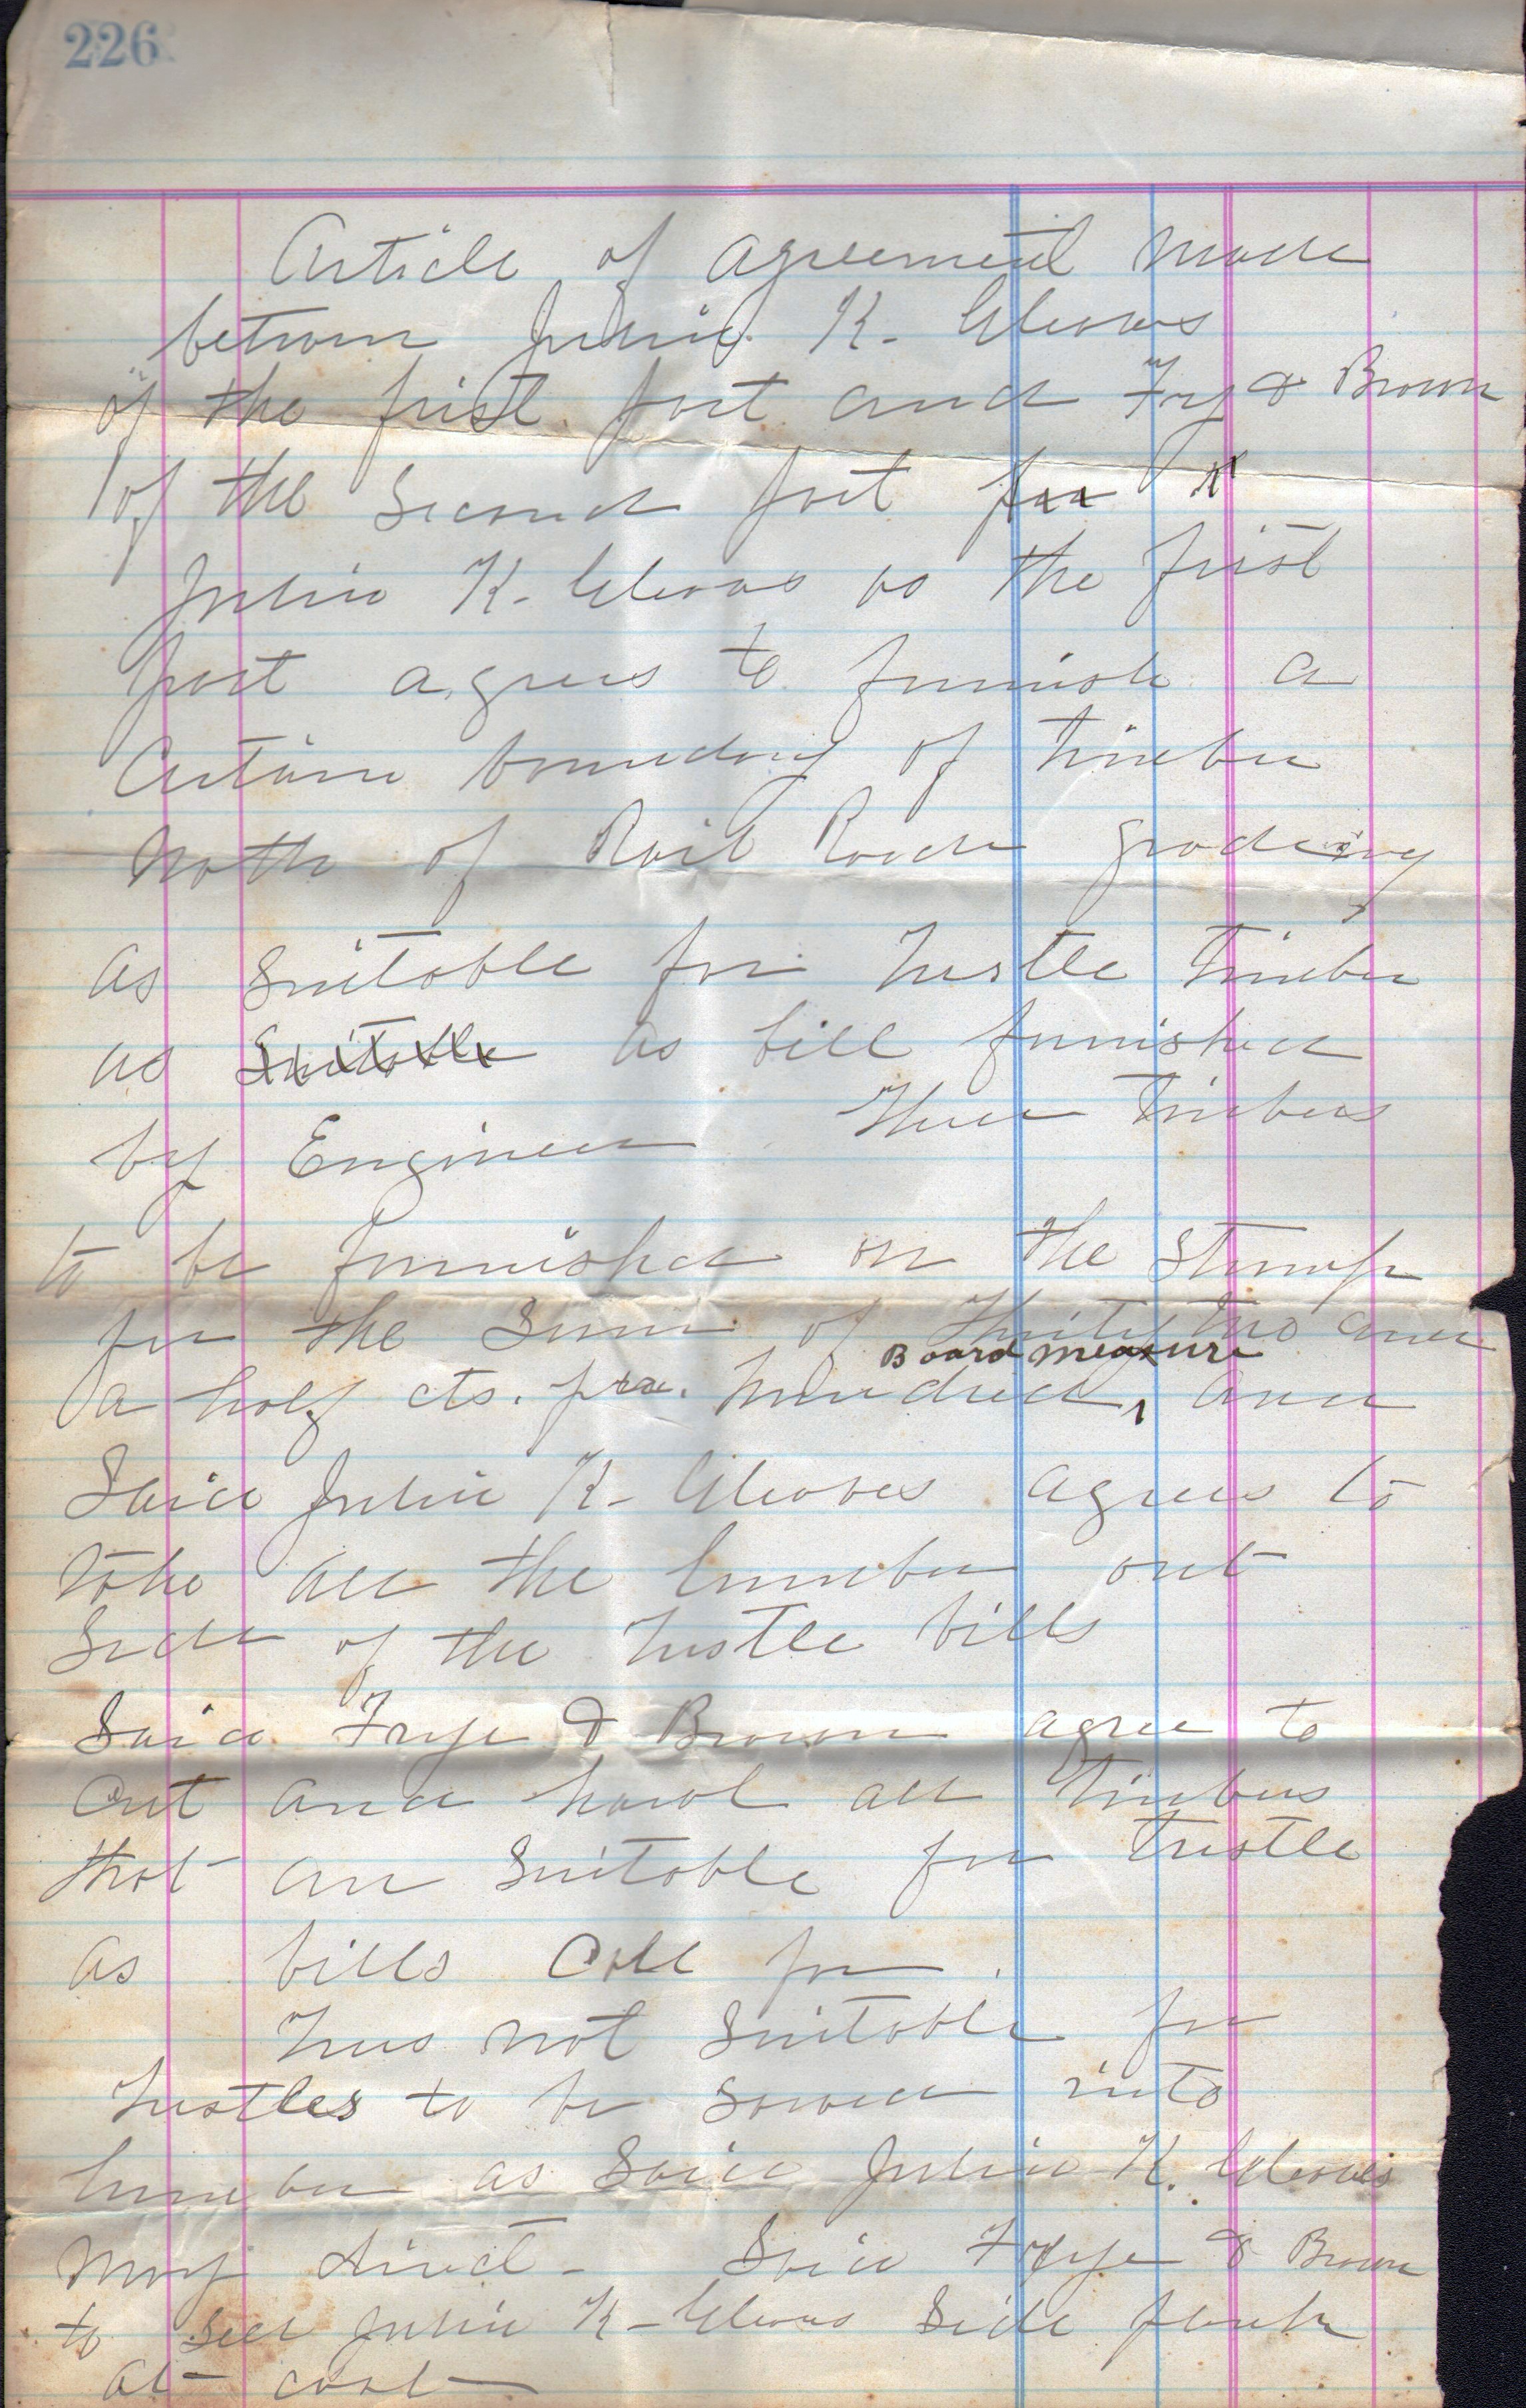 226
Article of agreement made
between Julric K. Cleaves
of the first part and Frye & Brown
of the second part
Julric K. Cleaves as the first
part agrees to furnish a
certain boundary of timber
North of Rail Road grading
as suitable for trestle timber
as suitable as bill furnished
by Engineer These timbers
to be furnished on the stump
for the sum of thirty two and
Board measure
a half cts. per. hundred, and
Said K. Cleaves agrees to
take all the lumber out
side of the trestle bills
Said Frye & Brown agree to
Cut and hawl all timbers
that are suitable for trestle
as bills call for.
Trees not suitable for
trestles to be sawed into
lumber as Said K. Cleaves
may direct - Said Frye & Brown
to sell K - Cleaves side plank
at cost